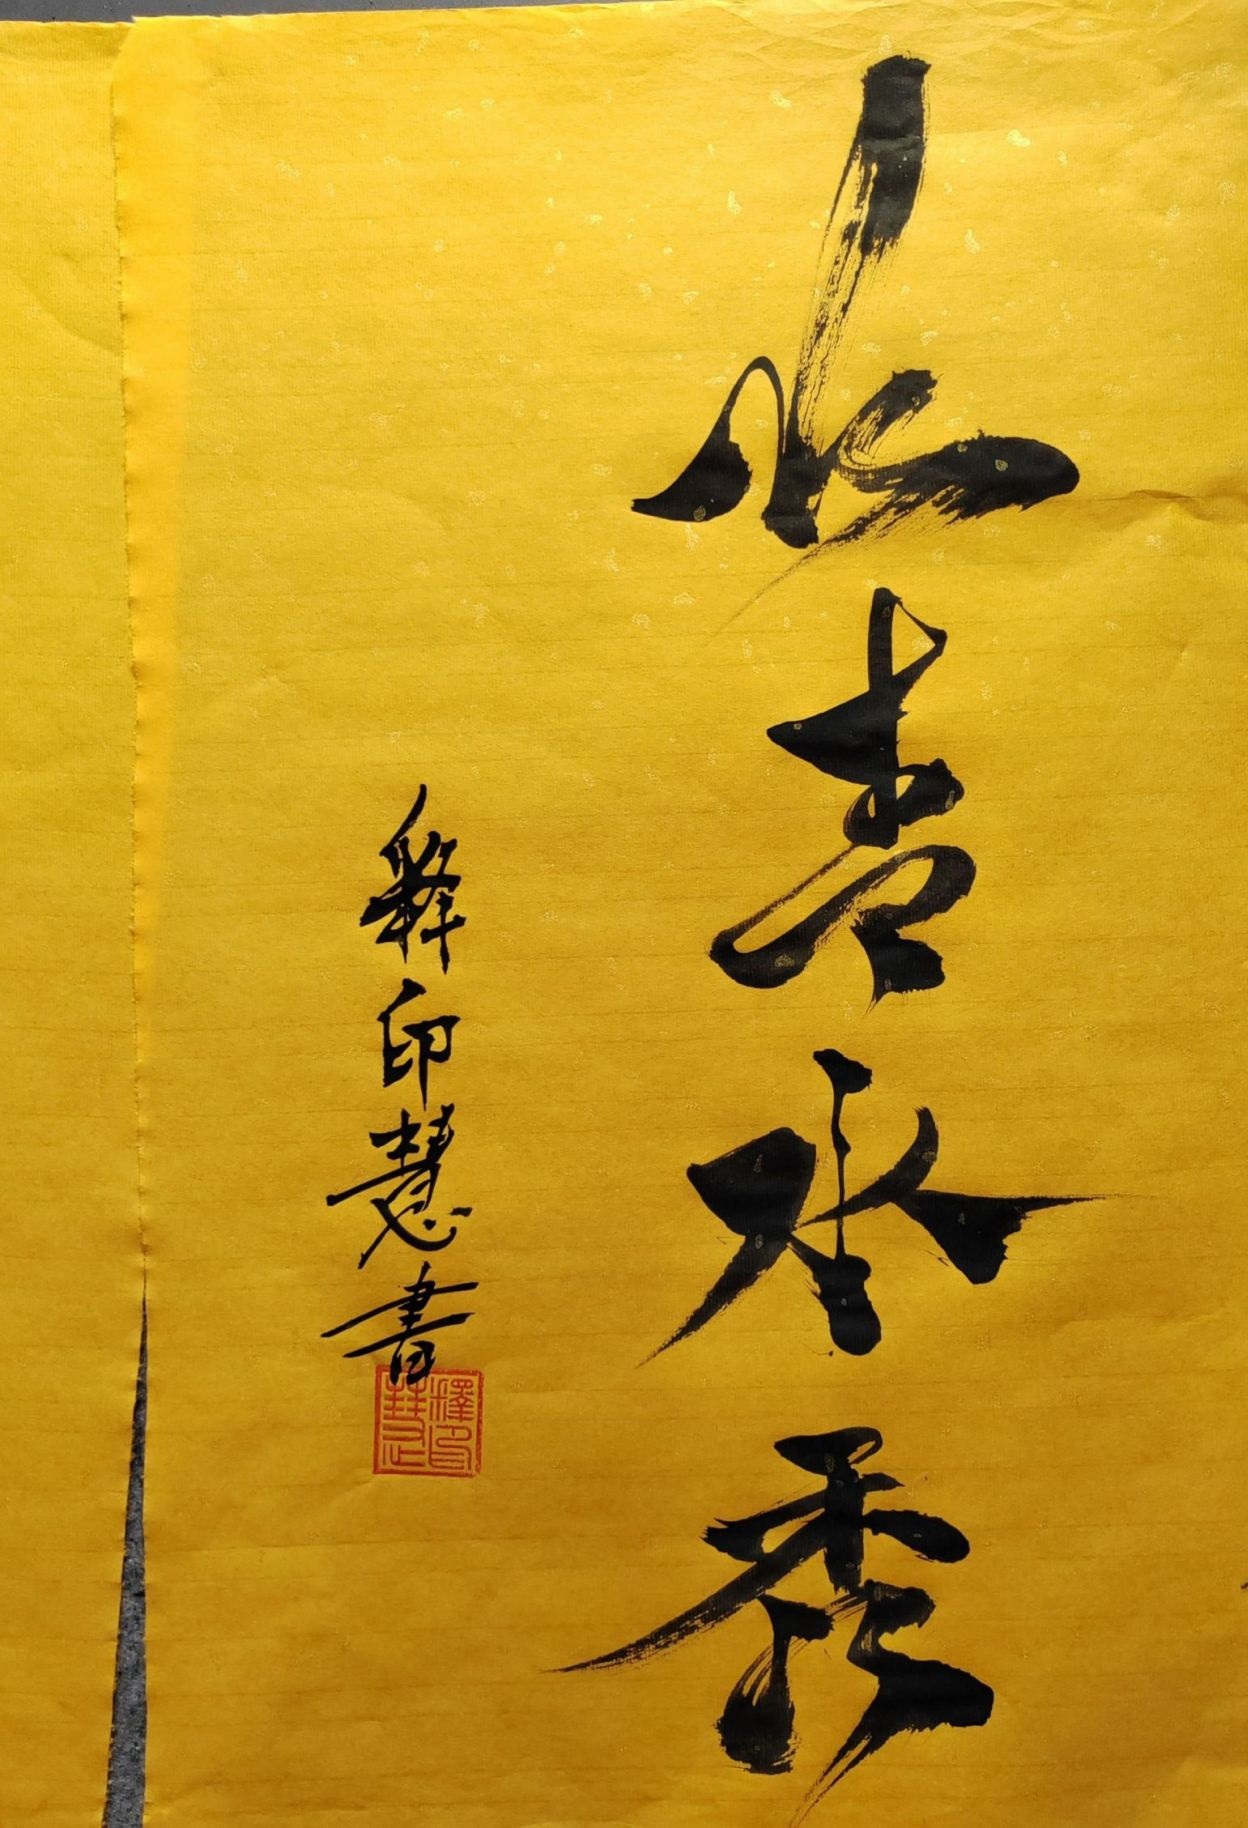 山青水秀
释印慧書
釋印慧